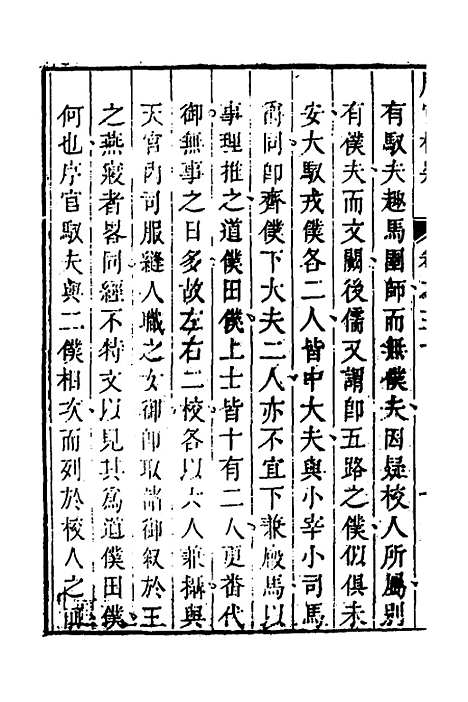 有馭夫趣馬圉師而無僕夫因疑校人所屬別
有僕夫而文闕後儒又謂即五路之僕似俱未
安大馭戎僕各二人皆中大夫與小宰小司馬
爵同即齊僕下大夫二人亦不宜下兼廄馬以
事理推之道僕田僕上士皆十有二人更番代
御無事之日多故左右二校各以六人兼攝與
天官內司服縫人職之女御即取諸御叙於王
之燕寢者畧同經不特文以見其為道僕田僕
何也序官馭夫與二僕相次而列於校人之前